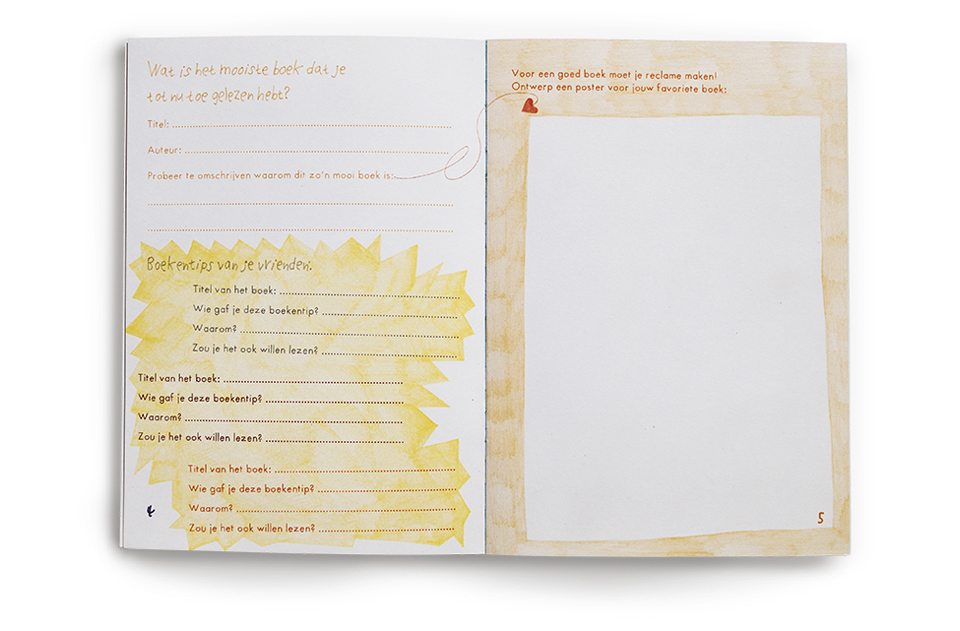 Wat is het mooiste boek dat je
tot nu toe gelezen hebt?
Titel:
Auteur:
Probeer te omschrijven waarom dit zo'n mooi boek is:
Boekentips van je vrienden.
Titel van het boek:
Wie gaf je deze boekentip?
Waarom?
Zou je het ook willen lezen?
Titel van het boek:
Wie gaf je deze boekentip?
Waarom?
Zou je het ook willen lezen?
Titel van het boek:
Wie gaf je deze boekentip?
Waarom?
Zou je het ook willen lezen?
4
Voor een goed boek moet je reclame maken!
Ontwerp een poster voor jouw favoriete boek:
5